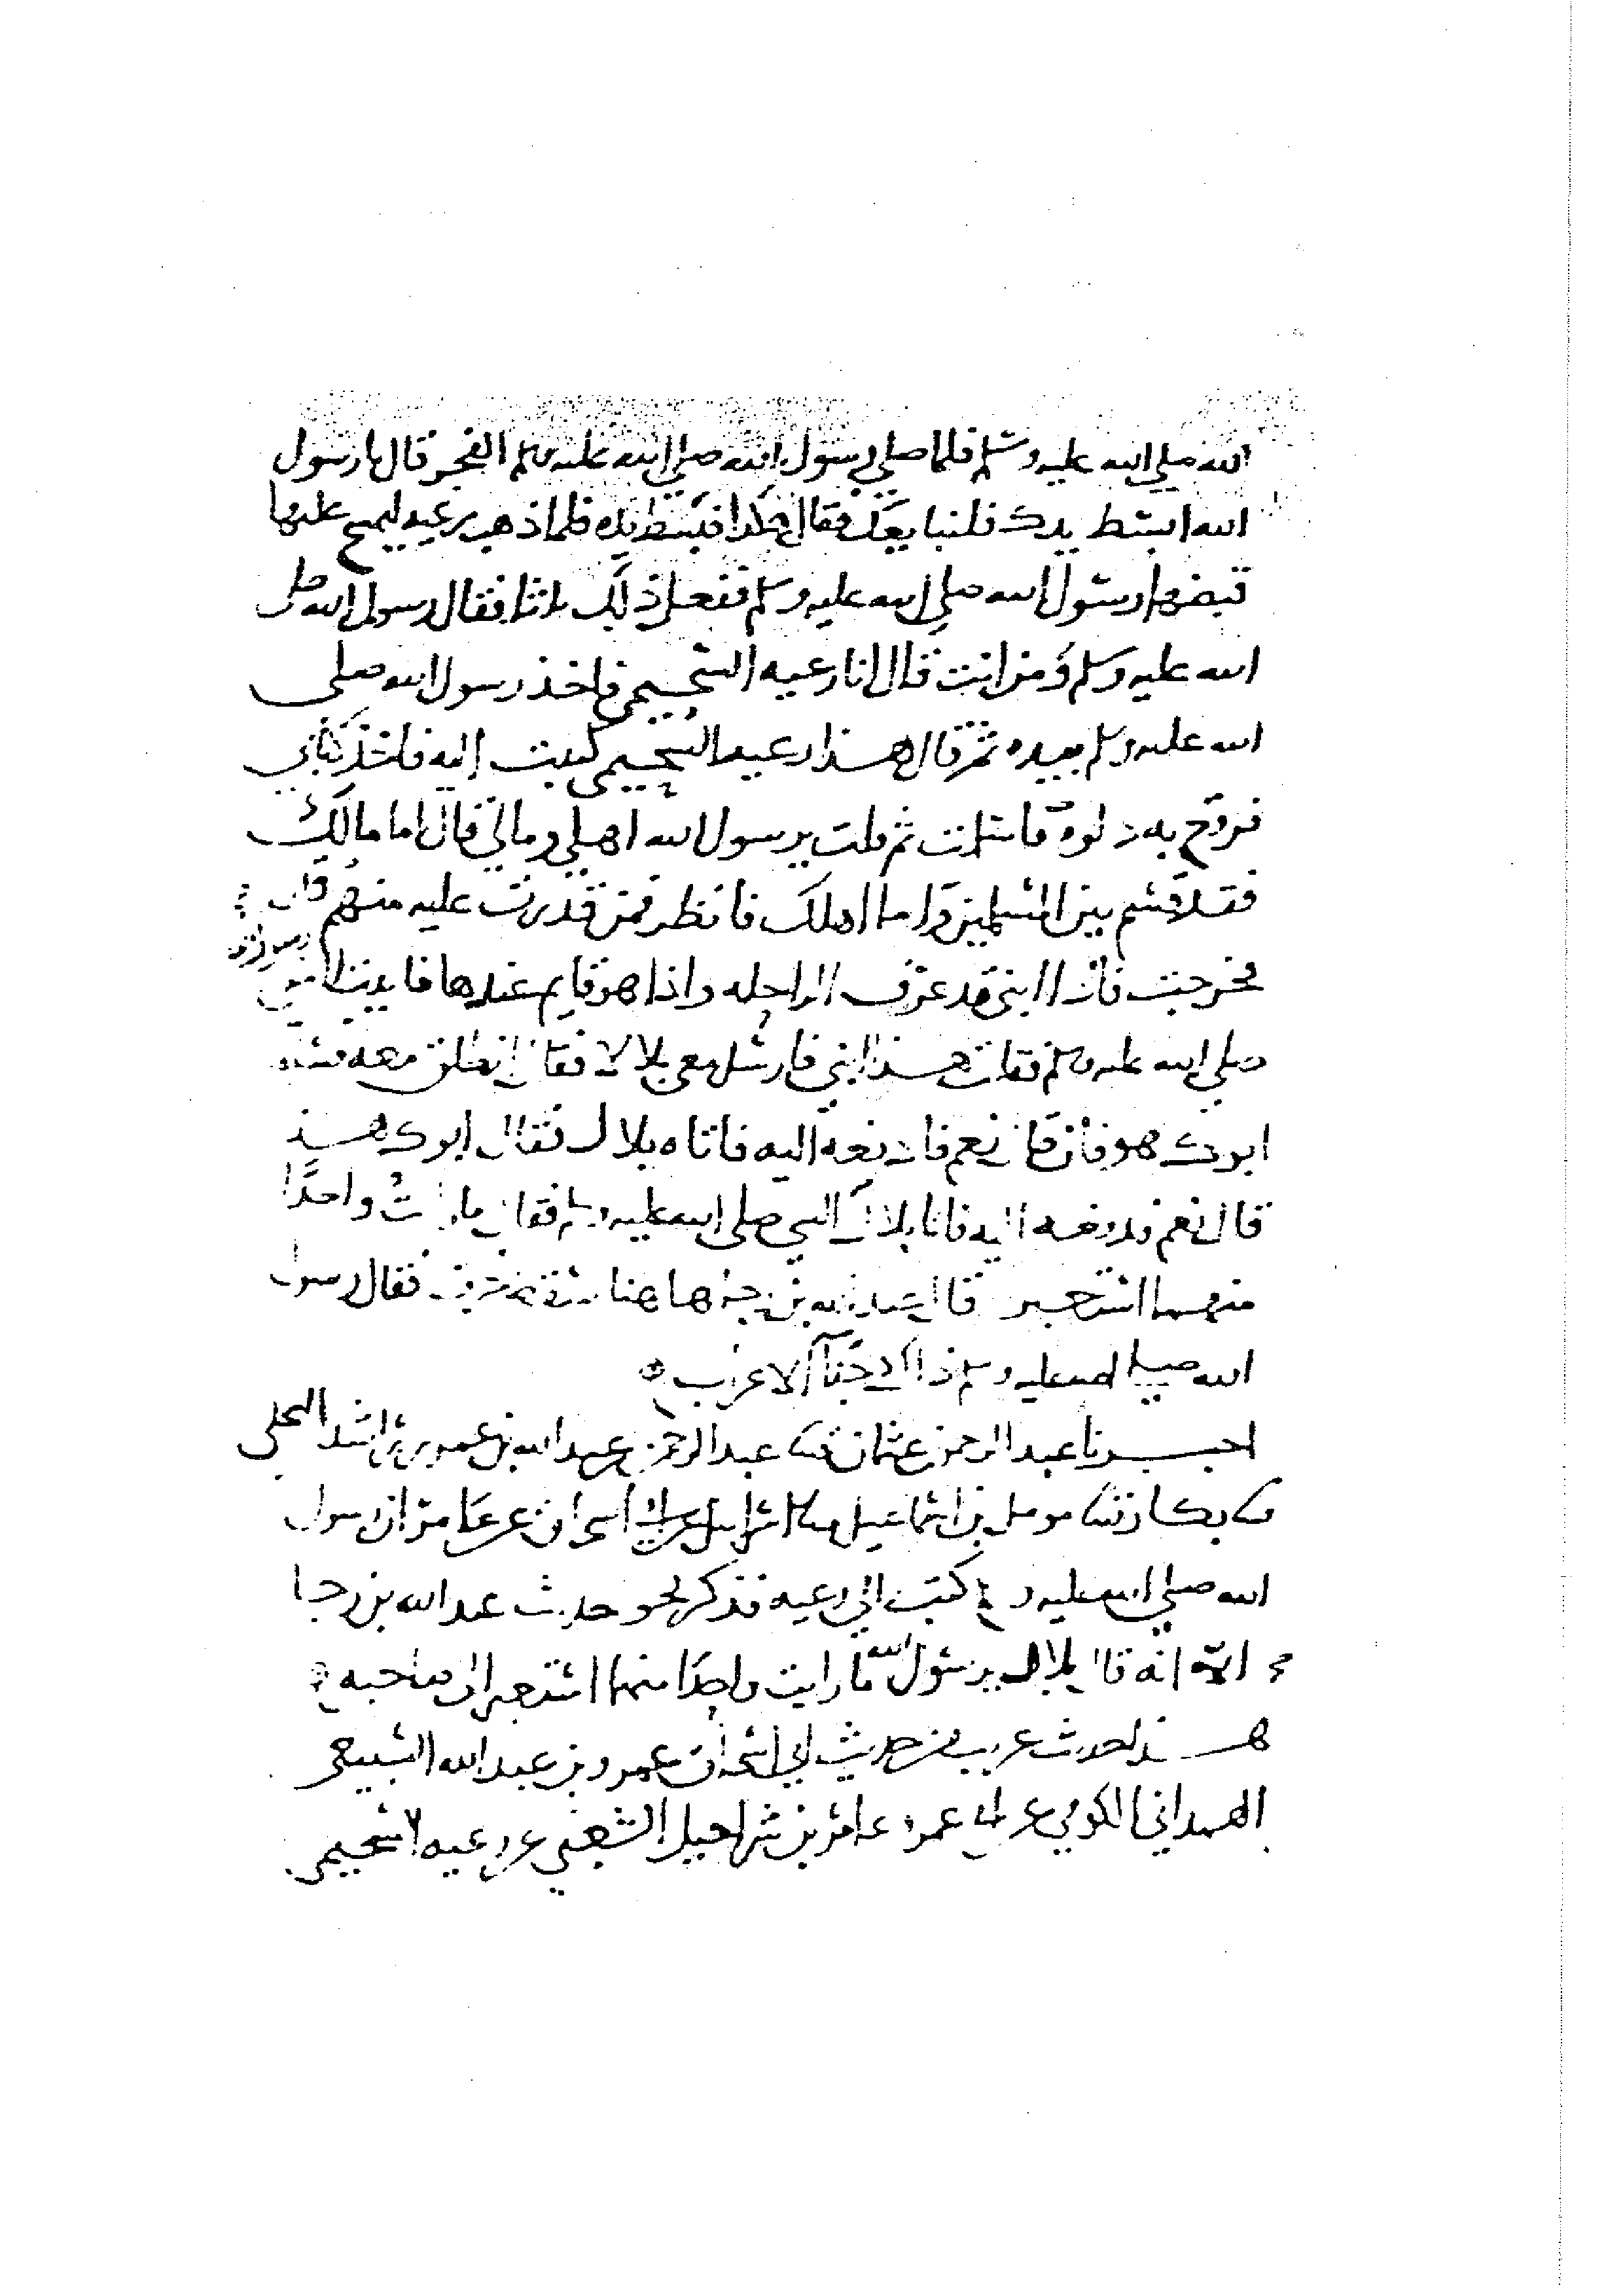 الله صلى الله عليه وسلم فلما صلى رسول الله صلى الله عليه وسلم الفجر قال يارسول
الله ابسط يدك فلنبايعك فقال هكذا فبسط يده فلما ذهب رعيه ليمسح عليها
قبضها رسول الله صلى الله عليه وسلم ففعل ذلك ثلاثا فقال رسول الله صلى
الله عليه وسلم ومن انت قال انا رعيه السحيمي فاخذ رسول الله صلى
الله عليه وسلم بيده ثم قال هذا رعيه السحيمي كتبت اليه فاخذ كتابي
فرقع به دلوه فاسلمت ثم قلت يرسول الله اهلي ومالي قال اما مالك
فقد قسم بين المسلمين واما اهلك فانظر فمن قدرت عليه منهم قال
فخرجت فاذا ابني قد عرف الراحله واذا هو قايم عندها فاتيت رسول الله
صلى الله عليه وسلم فقلت هذا ابني فارسل معي بلالا فقال انطلق معه فسله
ابوك هو فان قال نعم فادفعه اليه فاتاه بلال فقال ابوك هذا
قال نعم فدفعه اليه فاتا بلال النبي صلى الله عليه وسلم فقال ما رايت واحدًا
منهما استعبر قال عبد الله بن رجا هاهنا فقال رسول
الله صلى الله عليه وسلم ذاك جفآ الاعراب
اخبرنا عبد الرحمن عثمان ثنا عبد الرحمن بن عبد الله بن عمر بن راشد البجلي
ثنا بكار ثنا مومل بن اسماعيل ثنا اسرايل عن ابي اسحاق عن عامر ان رسول
الله صلى الله عليه وسلم كتب الى رعيه فذكر نحو حديث عبد الله بن رجا
الا انه قال بلال يرسول الله ما رايت واحدًا منهما استعبر الى صاحبه
هذا حديث غريب من حديث ابي اسحاق عمرو بن عبد الله السبيعي
الهمداني الكوفي عن ابي عمرو عامر بن شراحيل الشعبي عن رعيه السحيمي